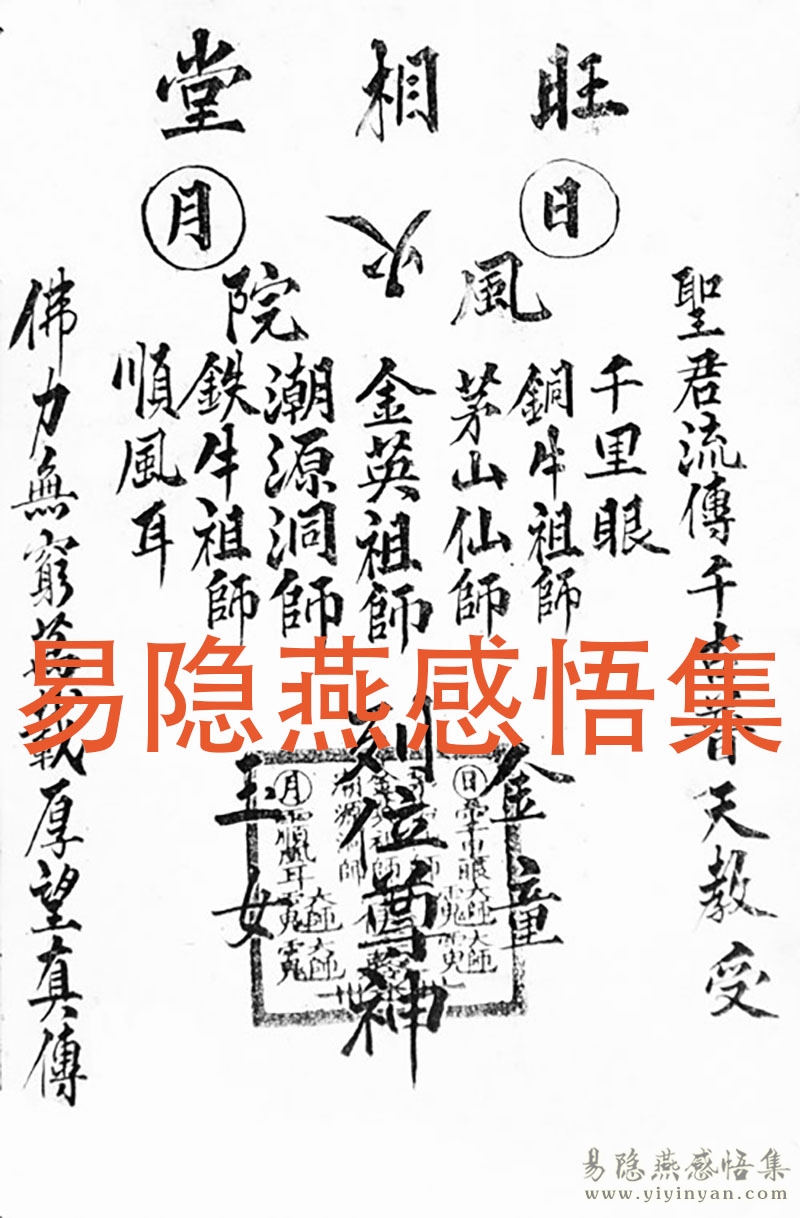 旺相堂
日月
風火院
聖君流傳千古普天教受
千里眼
銅牛祖師
茅山仙師
金英祖師
潮源洞師
鉄牛祖師
順風耳
佛力無窮萬載厚望真傳
金童
列位尊神
玉女
易隐燕感悟集
日
月
易隐燕感悟集
www.yiyinyan.com